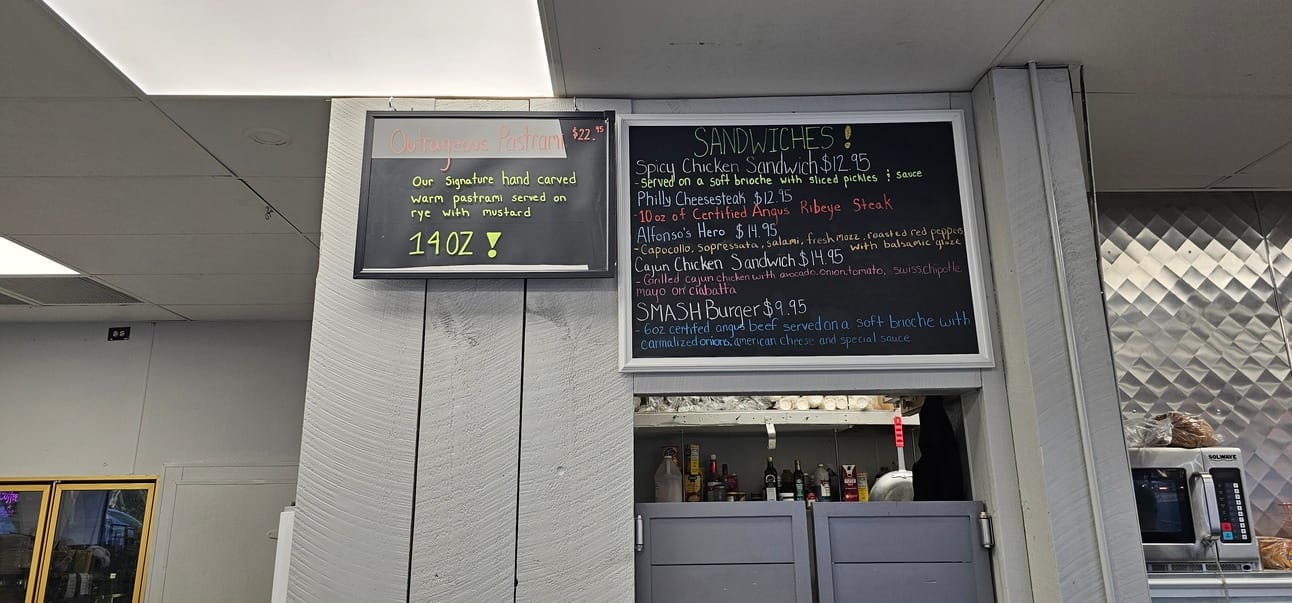 Outrageous Pastrami $22.95
Our signature hand carved
warm pastrami served on
rye with mustard
14OZ !
SANDWICHES !
Spicy Chicken Sandwich $12.95
- served on a soft brioche with sliced pickles & sauce
Philly Cheesesteak $12.95
- 10 oz of Certified Angus Ribeye Steak
Alfonso's Hero $14.95
- Capocollo, sopressata, salami, fresh mozz, roasted red peppers
with balsamic glaze
Cajun Chicken Sandwich $14.95
- Grilled cajun chicken with avocado, onion, tomato, swiss, chipotle
mayo on ciabatta
SMASH Burger $9.95
- 6oz certifed angus beef served on a soft brioche with
carmalized onions, american cheese and special sauce
SOLWAVE